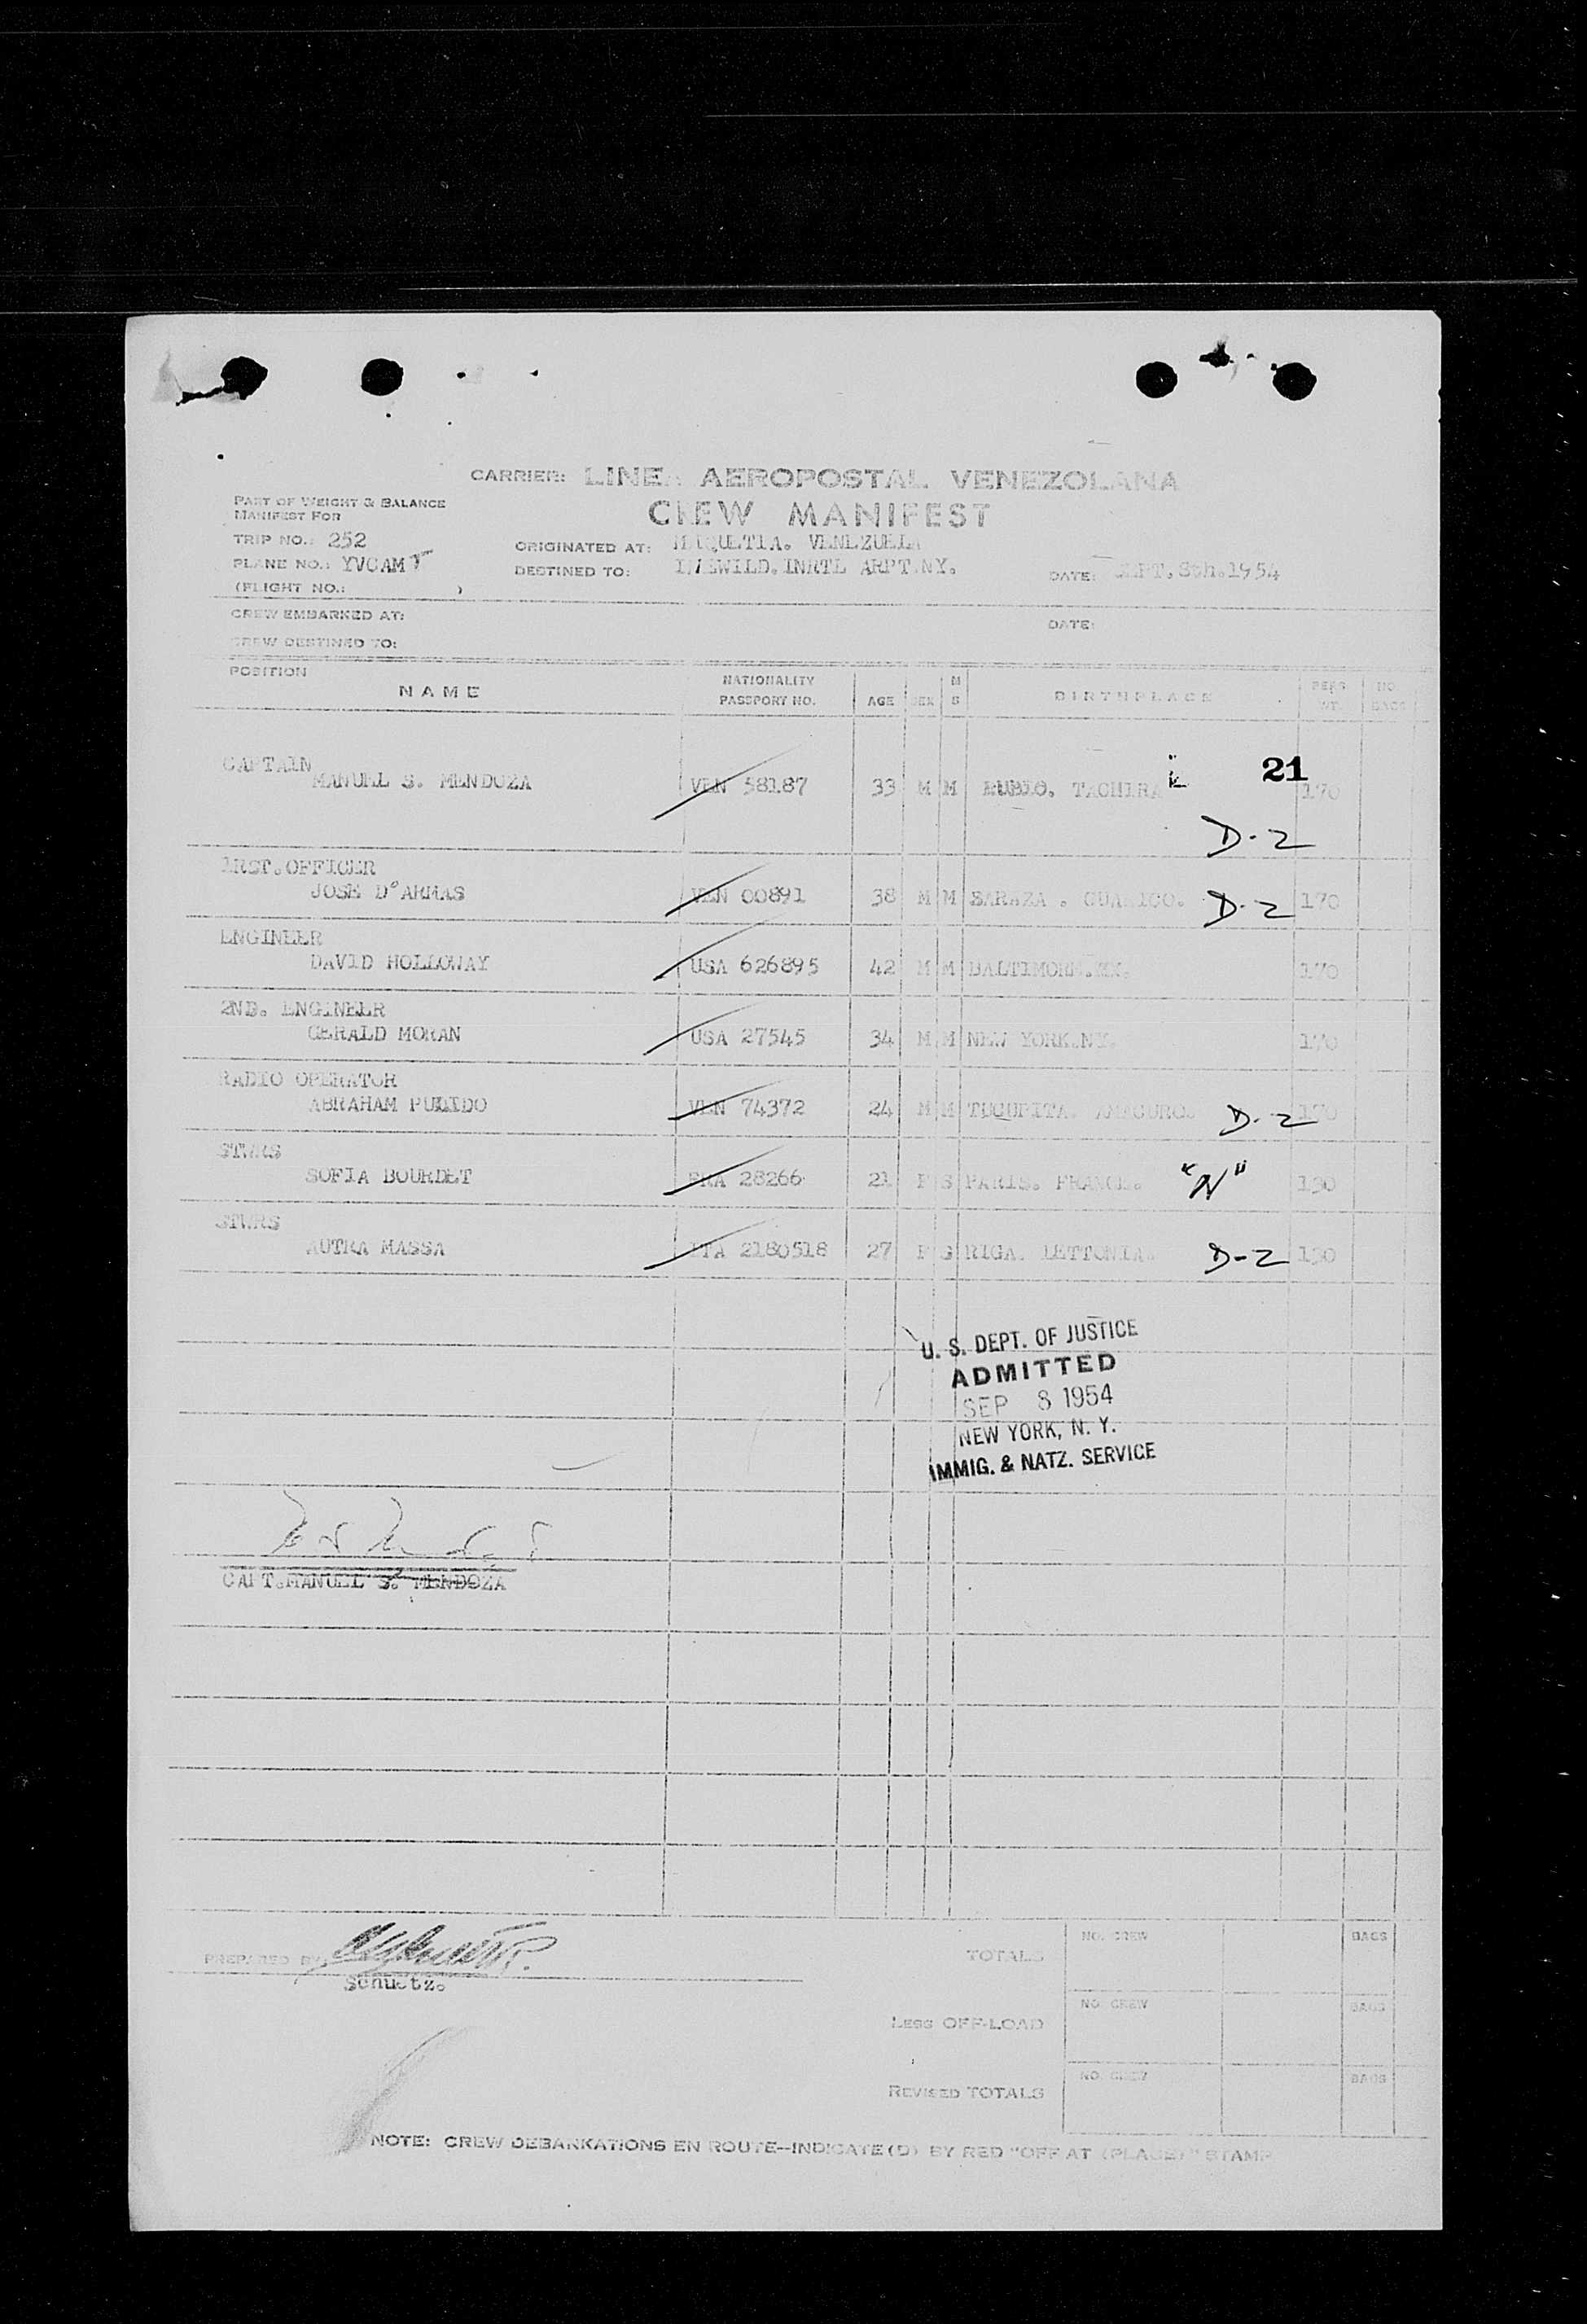 CARRIER: LINEA AEROPOSTAL VENEZOLANA
PART OF WEIGHT & BALANCE
MANIFEST FOR
CREW MANIFEST
TRIP NO.: 252
ORIGINATED AT: MAIQUETIA. VENEZUELA
PLANE NO.: YVCAMT
DESTINED TO: IDLEWILD.INRTL ARPT.NY.
DATE: SEPT.8th.1954
(FLIGHT NO.: )
CREW EMBARKED AT:
DATE:
CREW DESTINED TO:
POSITION
NAME NATIONALITY PASSPORT NO. AGE SEX M S BIRTHPLACE PERS WT. NO BAGS
CAPTAIN 21
MANUEL S. MENDOZA VEN 58187 33 M M RUBIO. TACHIRA 170
D-2
1RST.OFFICER
JOSE D'ARMAS VEN 00891 38 M M ZARAZA . GUARICO. D-2 170
ENGINEER
DAVID HOLLOWAY USA 626895 42 M M BALTIMORE. 170
2ND. ENGINEER
GERALD MORAN USA 27545 34 M M NEW YORK.NY. 170
RADIO OPERATOR
ABRAHAM PULIDO VEN 74372 24 M M TUCUPITA. AMACURO. D-2 170
STWRS
SOFIA BOURDET FRA 28266 21 F S PARIS. FRANCE. "N" 130
STWRS
AUTRA MASSA ITA 2180518 27 F S RIGA. LETTONIA. D-2 130
U. S. DEPT. OF JUSTICE
ADMITTED
SEP 8 1954
NEW YORK, N. Y.
IMMIG. & NATZ. SERVICE
CAPT.MANUEL S. MENDOZA
PREPARED BY
Schuetz.
TOTALS NO. CREW BAGS
LESS OFF-LOAD NO. CREW BAGS
REVISED TOTALS NO. CREW BAGS
NOTE: CREW DEBARKATIONS EN ROUTE--INDICATE (D) BY RED "OFF AT (PLACE)" STAMP